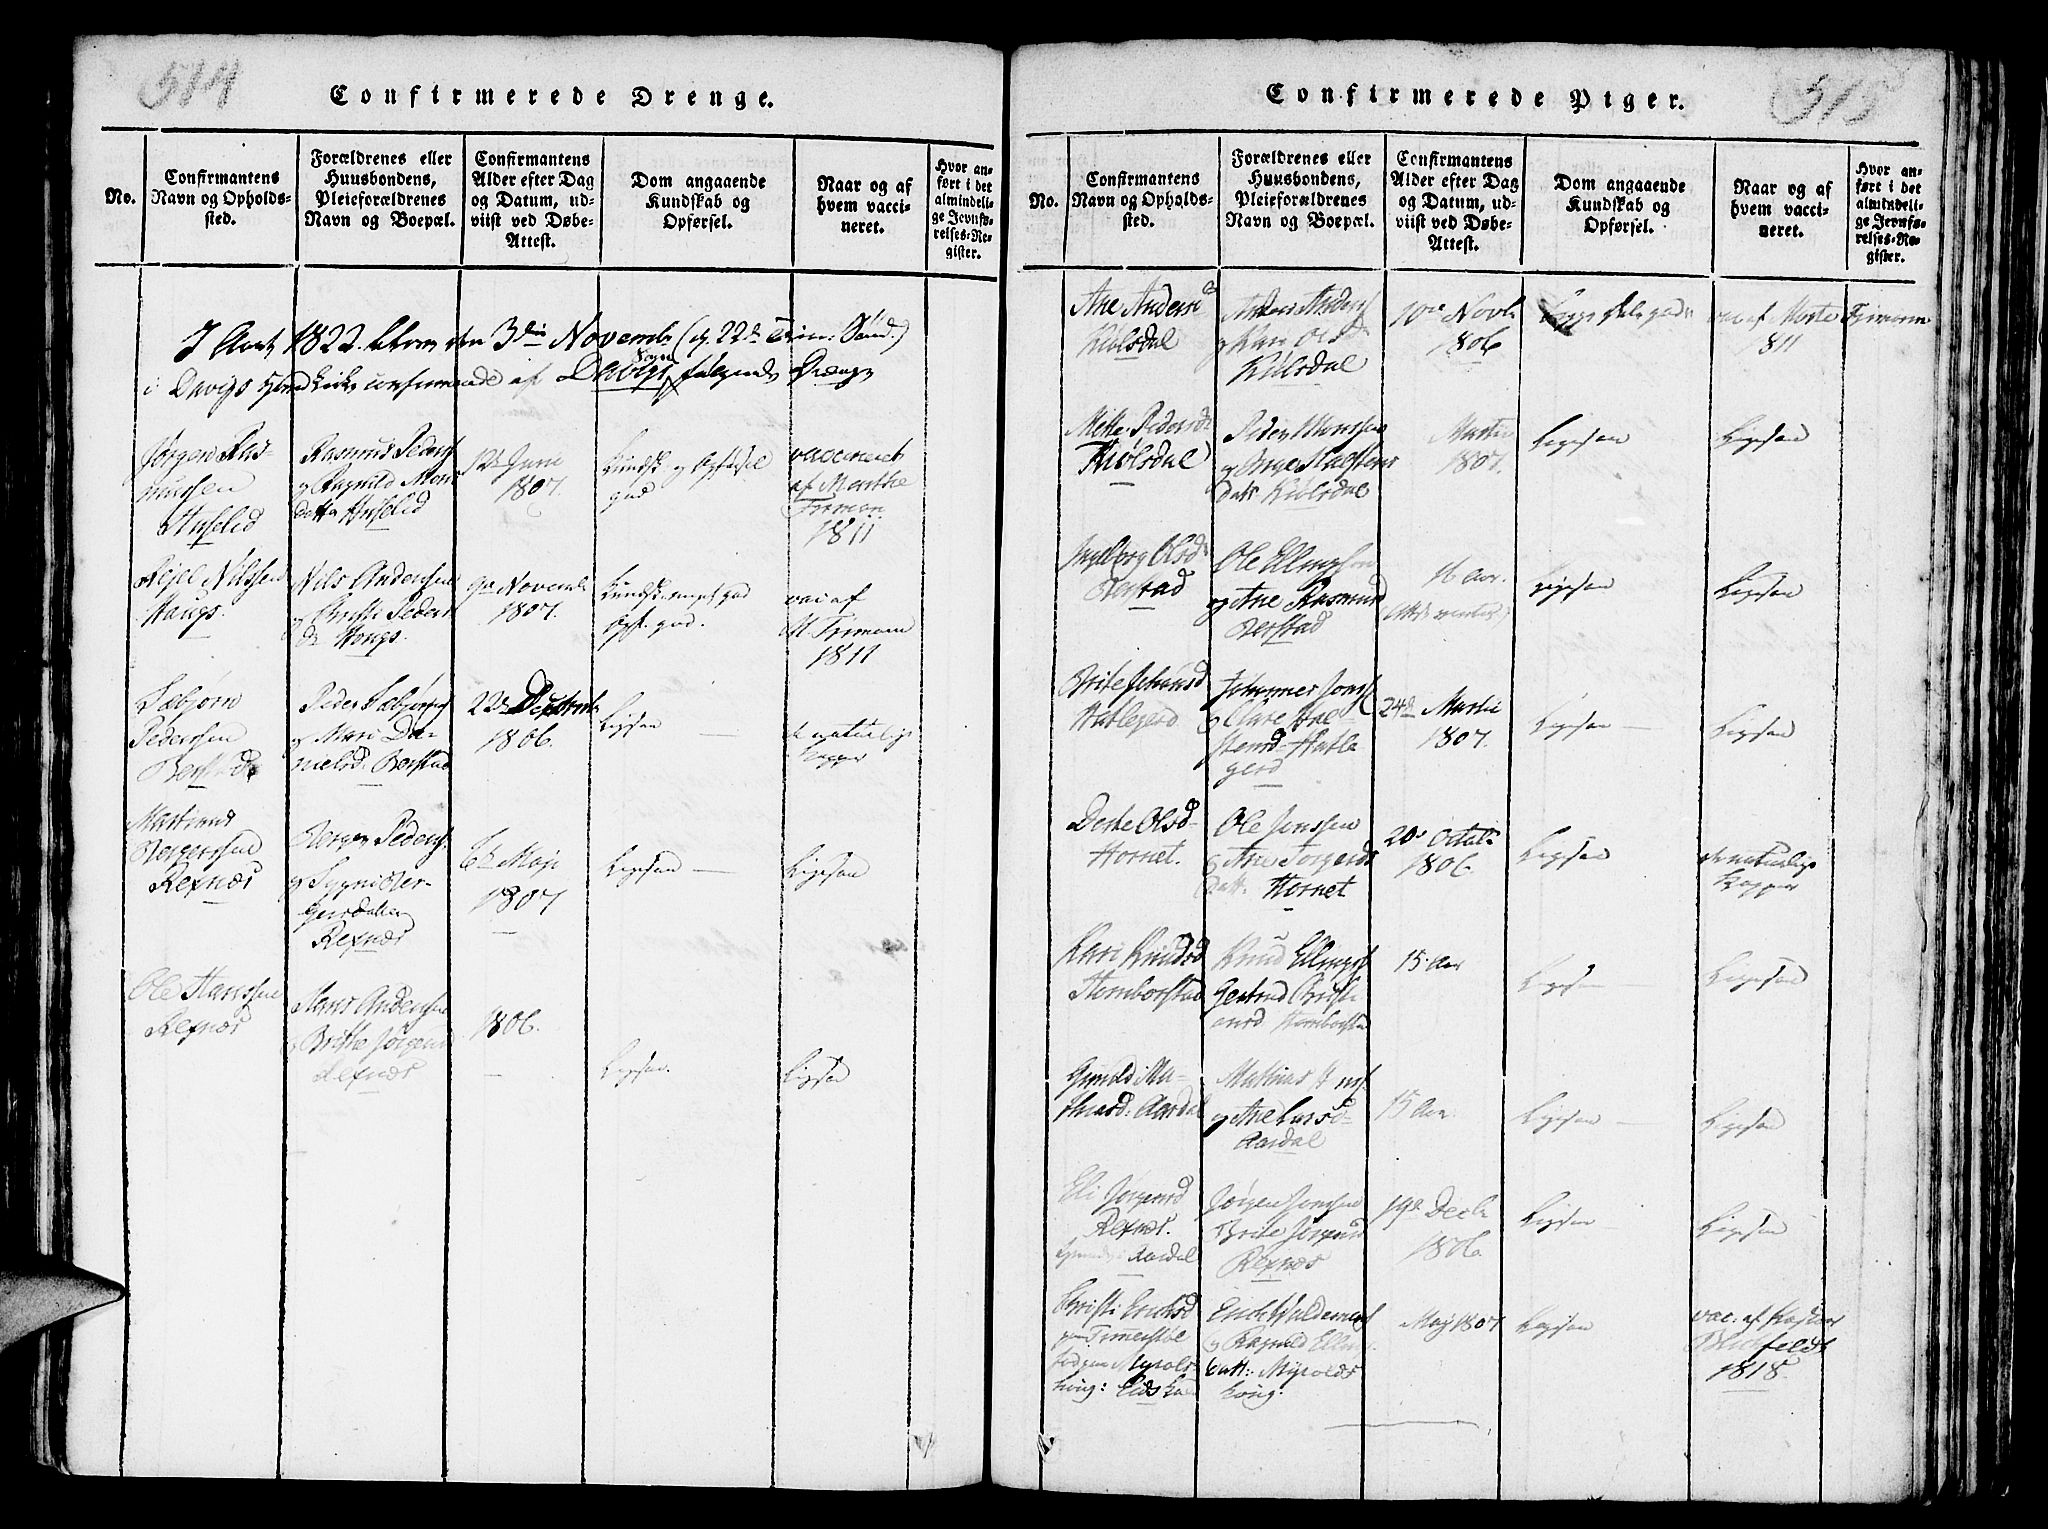 514
Confirmerede Drenge.
No.
Confirmantens
Navn og Opholds-
sted.
Forældrenes eller
Huusbondens,
Pleieforældrenes
Navn og Boepæl.
Confirmantens
Alder efter Dag
og Datum, ud-
viist ved Døbe-
Attest.
Dom angaaende
Kundskab og
Opførsel.
Naar og af
hvem vacci-
neret.
Hvor an-
ført i det
almindeli-
ge Jevnfø-
relses-Re-
gister.
I Aaret 1822. den 3die Novemb (22de Trin: Sønd.)
i Davigs Kirke af Davigs Sogn følgende Drenge
Jørgen Ras-
mussen
Huselid
Rasmus Peders
og Ragnild Mons
Datter Huselid
12te Juni
1807.
Kundsk og Opførsel
god
vaccineret
af Menthe
Frimann
1811
Niels Andersen
og Christi Peders
Dr Haugs.
Nilssen
Haugs.
9de Novemb
1807.
Kundsk. meget god
Opf. god.
vac af
M. Frimann
1811
Sæbjørn
Pederssen
Berstad
Peder Sæbjørns
og Mari Da-
nielsd. Berstad
22de
1806.
Ligesaa
de naturlige
Kopper
Børgerssen
Rexnæs
Børger Peders.
og Sygni Bør-
gersdatter
Rexnæs
6te Maji
1807
Ligesaa
Ligesaa
Ole Hanssen
Rexnæs
Hans Andersen
og Brithe Jørgens
Rexnæs
1806.
Ligesaa
Ligesaa
515
Confirmerede Piger.
No.
Confirmantens
Navn og Opholds-
sted.
Forældrenes eller
Huusbondens,
Pleieforældrenes
Navn og Boepæl.
Confirmantens
Alder efter Dag
og Datum, ud-
viist ved Døbe-
Attest.
Dom angaaende
Kundskab og
Opførsel.
Naar og af
hvem vacci-
neret.
Hvor an-
ført i det
almindeli-
ge Jevnfø-
relses-Re-
gister.
Ane Andersd
Kiølsdal
Anders Anders
og Kari Olsd
Kiølsdal
10de Novb
1806
vac af Frimann
1811
Mette Pedersd
Kiølsdal
Peder Monssen
og Inge Halsteins
Datt. Kiølsdal
Martii
1807.
Ligesaa
Ligesaa
Ingeborg Olsd
Berstad
Ole Ellingssen
og Ane Rasmusd
Berstad
16 Aar.
Ligesaa
Ligesaa
Brite Johansd
Hatlegierd
Johannes Jons
og Hal-
steinsd. Hatle
gerd
24de Martii
1807.
Ligesaa
Ligesaa
Olsd
Hornet.
Ole Jenssen
og Ane Torgerds
Datt. Hornet
20de Octobr
1806.
Ligesaa
de naturlige
Kopper
Kari Knudsd
Hemborstad
Knud Ellings
Gertrud Christi
ansd Hemborstad
15 Aar
Ligesaa
Ligesaa
Gunild Ma-
thiasd: Aardal
Mathias
og Ane Larsd
Aardal
15 Aar
Ligesaa
Ligesaa
Eli Jørgensd
Rexnæs.
Aardal
Jørgen Jonssen
Brite Jørgensd
Rexnæs
19de Decbr
1806.
Ligesaa
Ligesaa
Christi Ericksd
Erich Waldemars
og Ragnild Elling
datt: Myrolds
houg.
Maj 1807
Ligesaa
vac: af Pastor
1818.